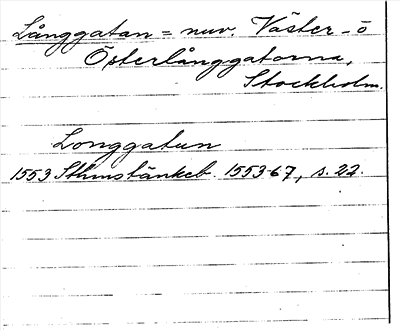 Långgatan = nuv. Väster- o
Österlånggatorna,
Stockholm.
Longgatun
1553 Sthmstänkeb. 1553-67, s. 22.